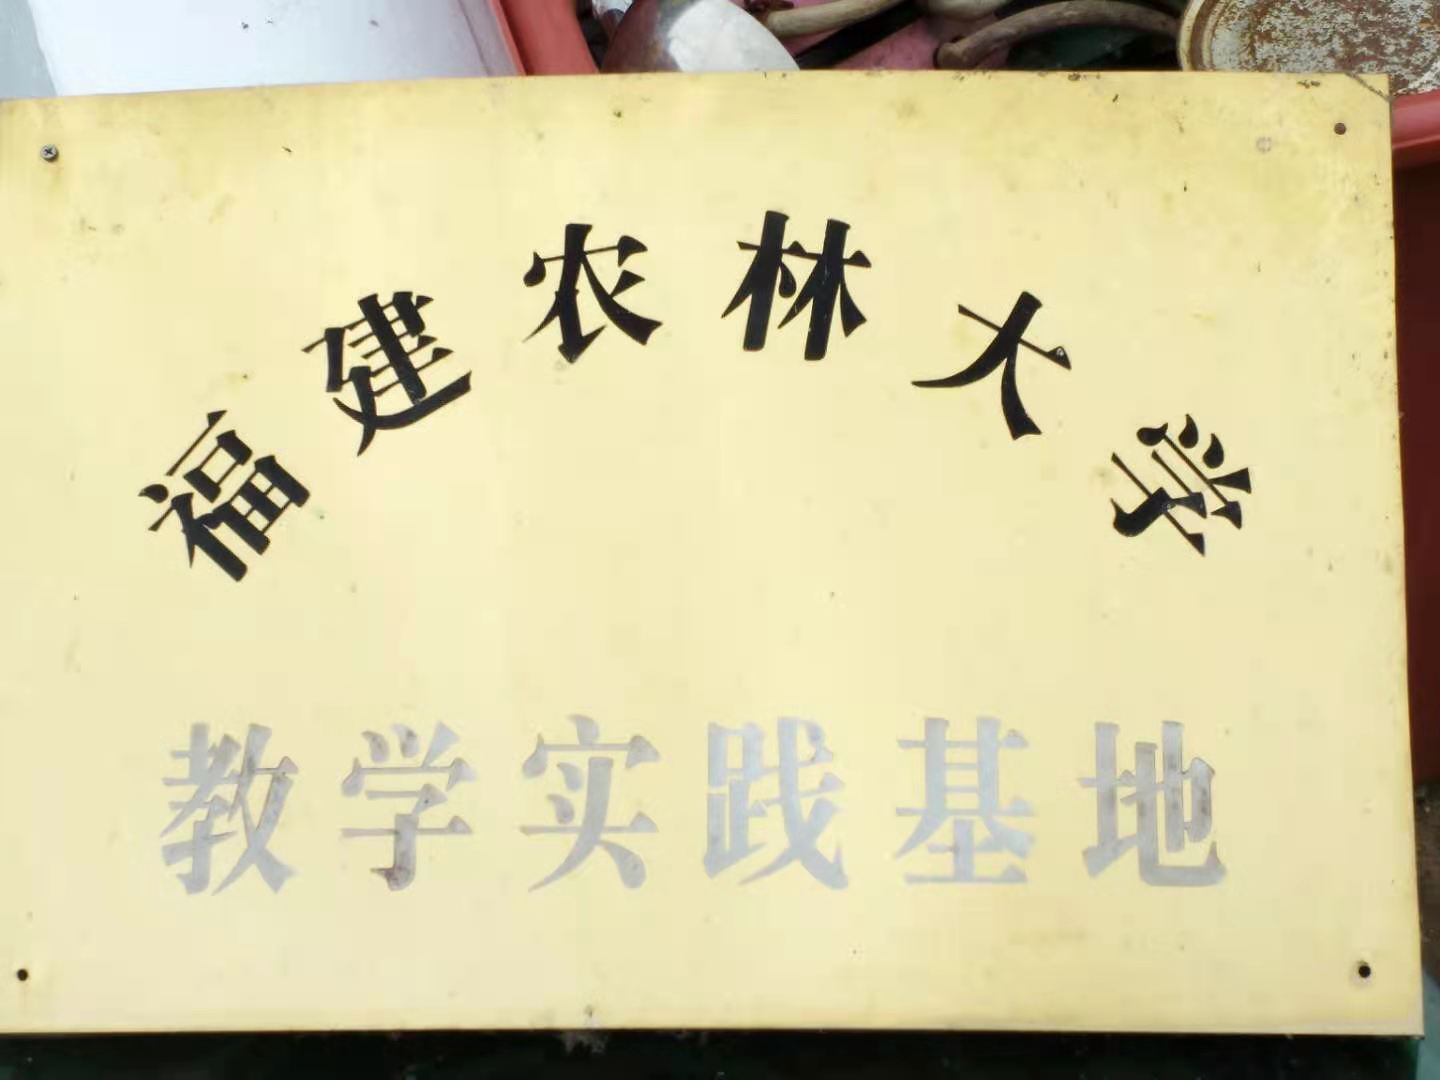 福建农林大学
教学实践基地